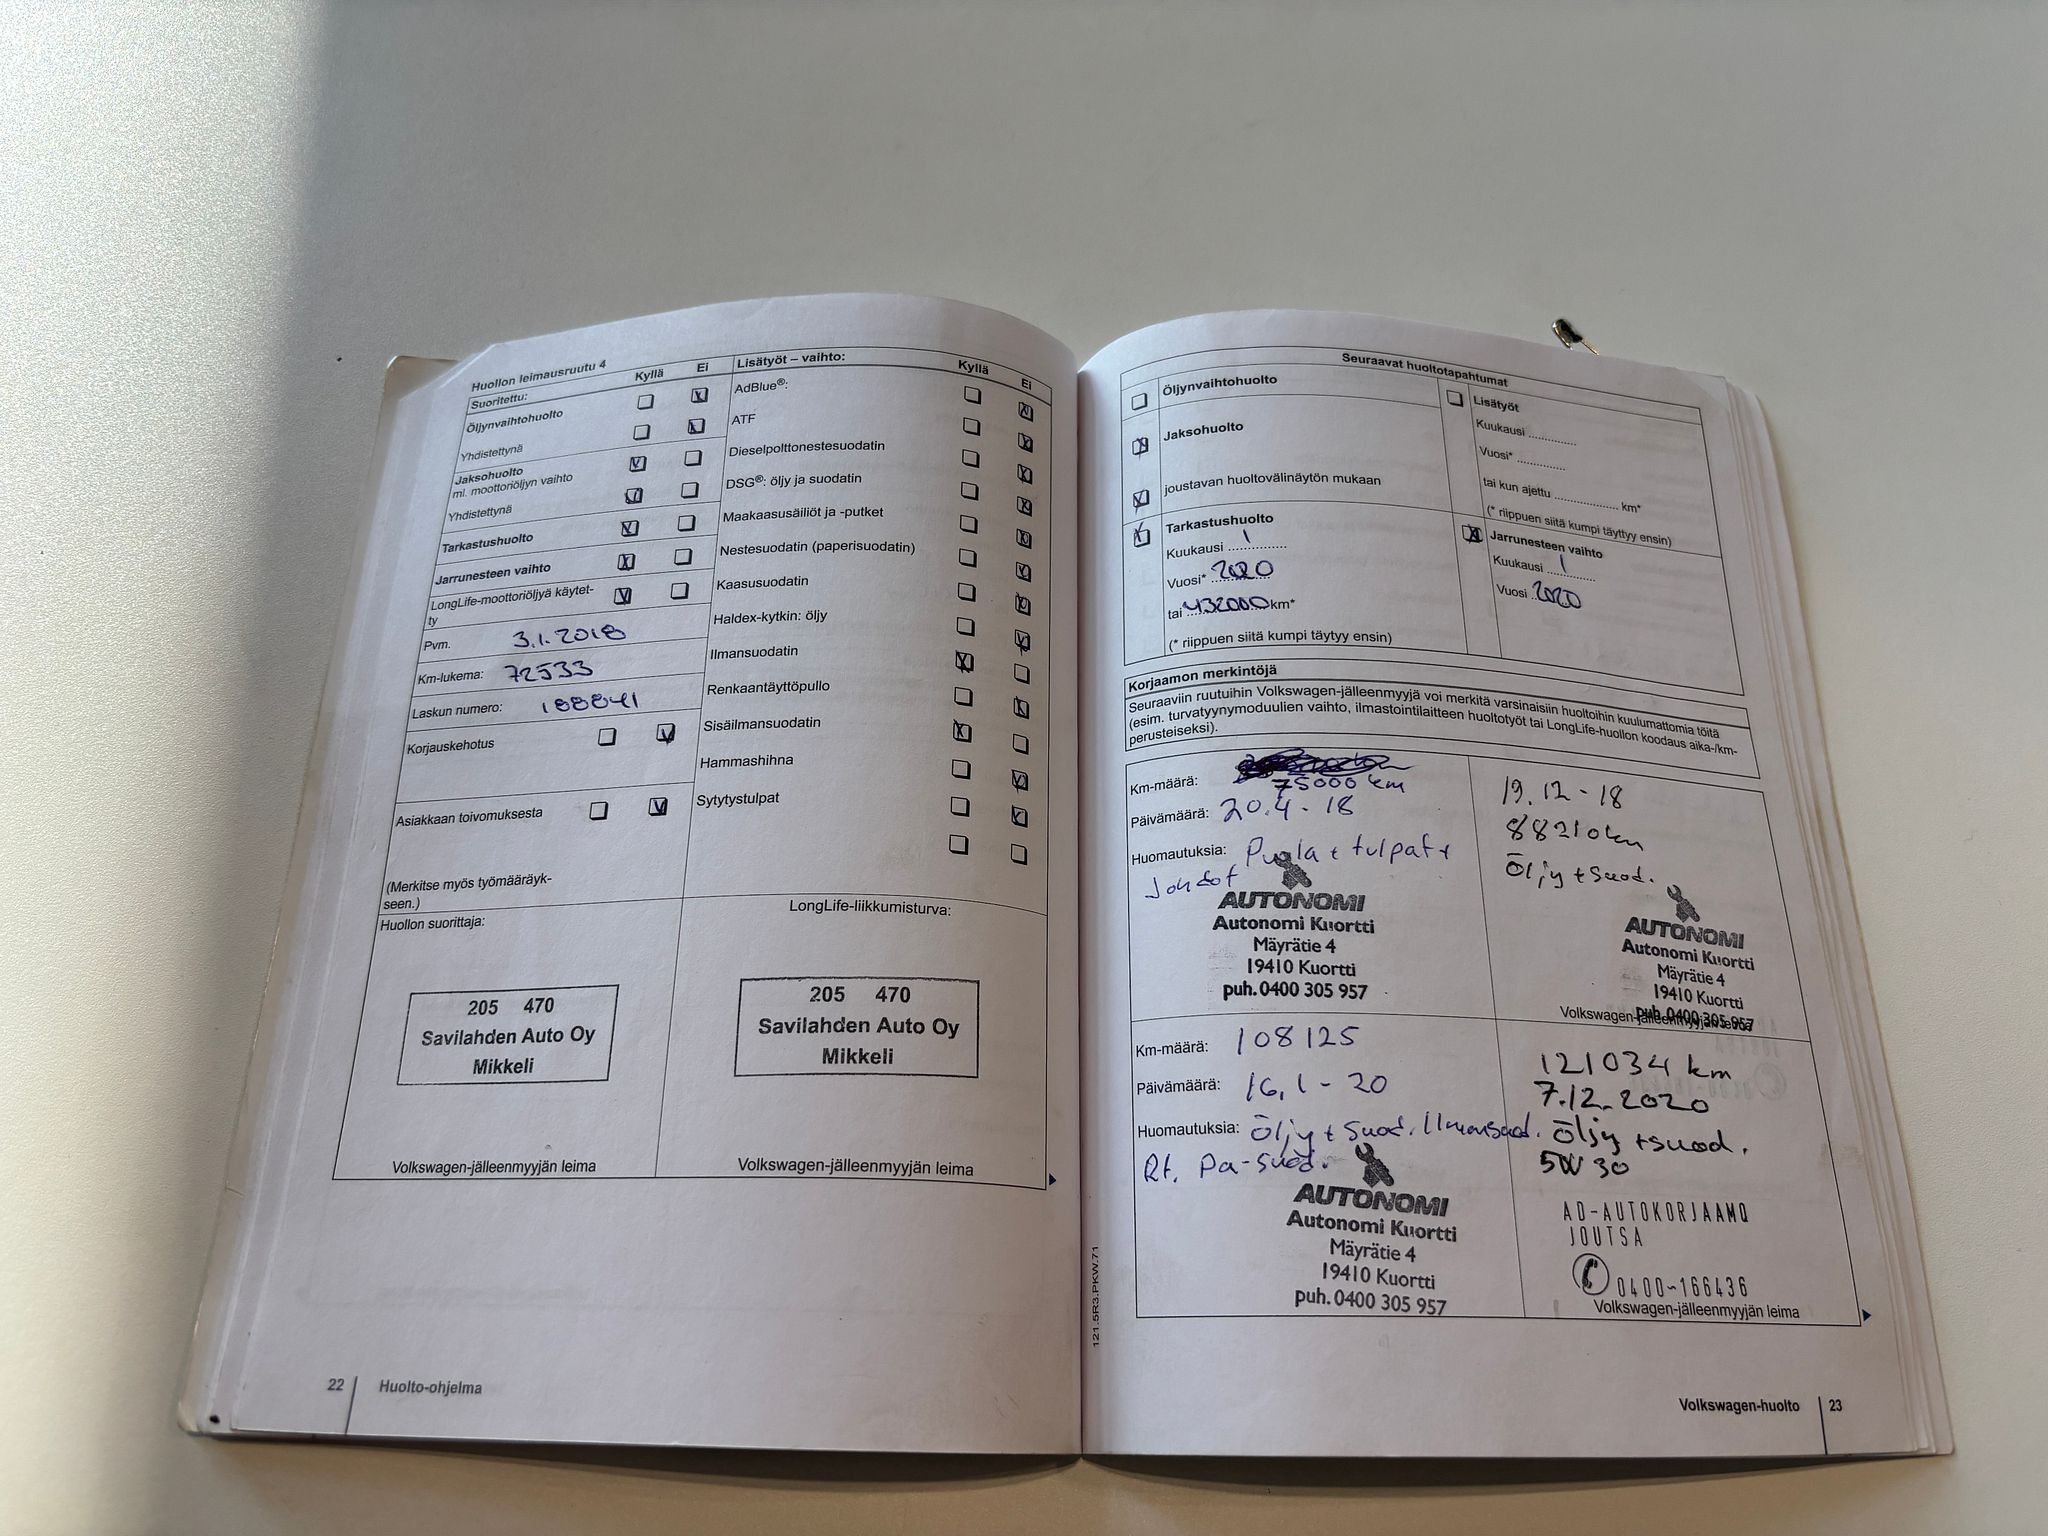 Huollon leimausruutu 4
Suoritettu: Kyllä Ei
Öljynvaihtohuolto
Yhdistettynä
Jaksohuolto
ml. moottoriöljyn vaihto
Yhdistettynä
Tarkastushuolto
Jarrunesteen vaihto
LongLife-moottoriöljyä käytet-
ty
Pvm. 3.1.2018
Km-lukema: 72533
Laskun numero: 188841
Korjauskehotus
Asiakkaan toivomuksesta
(Merkitse myös työmääräyk-
seen.)
Huollon suorittaja:
205 470
Savilahden Auto Oy
Mikkeli
Volkswagen-jälleenmyyjän leima
Lisätyöt – vaihto: Kyllä Ei
AdBlue®:
ATF
Dieselpolttonestesuodatin
DSG®: öljy ja suodatin
Maakaasusäiliöt ja -putket
Nestesuodatin (paperisuodatin)
Kaasusuodatin
Haldex-kytkin: öljy
Ilmansuodatin
Renkaantäyttöpullo
Sisäilmansuodatin
Hammashihna
Sytytystulpat
LongLife-liikkumisturva:
205 470
Savilahden Auto Oy
Mikkeli
Volkswagen-jälleenmyyjän leima
22 Huolto-ohjelma
Seuraavat huoltotapahtumat
Öljynvaihtohuolto
Jaksohuolto
joustavan huoltovälinäytön mukaan
Tarkastushuolto
Kuukausi 1
Vuosi* 2020
tai 132000 km*
(* riippuen siitä kumpi täytyy ensin)
Lisätyöt
Kuukausi ............
Vuosi* ............
tai kun ajettu ................ km*
(* riippuen siitä kumpi täyttyy ensin)
Jarrunesteen vaihto
Kuukausi 1
Vuosi 2020
Korjaamon merkintöjä
Seuraaviin ruutuihin Volkswagen-jälleenmyyjä voi merkitä varsinaisiin huoltoihin kuulumattomia töitä
(esim. turvatyynymoduulien vaihto, ilmastointilaitteen huoltotyöt tai LongLife-huollon koodaus aika-/km-
perusteiseksi).
Km-määrä: 75000 km
Päivämäärä: 20.4-18
Huomautuksia: Puola + tulpat +
Johdot
AUTONOMI
Autonomi Kuortti
Mäyrätie 4
19410 Kuortti
puh. 0400 305 957
19.12-18
88210km
Öljy + Suod.
AUTONOMI
Autonomi Kuortti
Mäyrätie 4
19410 Kuortti
puh. 0400 305 957
Volkswagen-jälleenmyyjän leima
Km-määrä: 108125
Päivämäärä: 16.1-20
Huomautuksia: Öljy + Suod. Ilmansuod.
Rt. Pa-Suod.
AUTONOMI
Autonomi Kuortti
Mäyrätie 4
19410 Kuortti
puh. 0400 305 957
121034 km
7.12.2020
Öljy + suod.
5W30
AD-AUTOKORJAAMO
JOUTSA
0400-166436
Volkswagen-jälleenmyyjän leima
121.5R3.PKW.71
Volkswagen-huolto 23